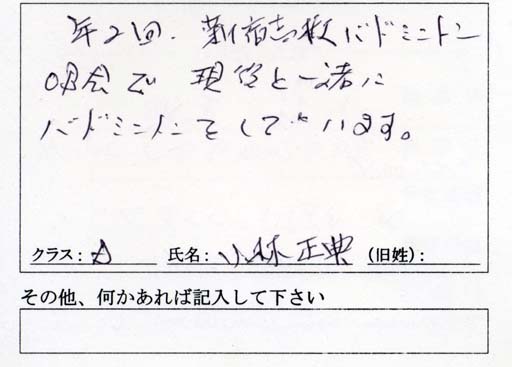 年2回、新宿高校バドミントン
OB会で現役と一緒に
バドミントンをしています。
クラス： A 氏名： 小林正典 (旧姓)：
その他、何かあれば記入して下さい